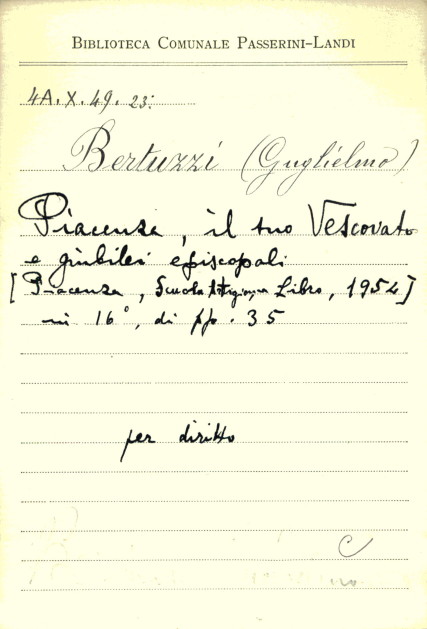 BIBLIOTECA COMUNALE PASSERINI-LANDI
4A. X. 49. 23.
Bertuzzi (Guglielmo)
Piacenza, il suo Vescovato
e giubilei episcopali
[Piacenza, Scuola Artigiana Libro, 1954]
in 16°, di pp. 35
per diritto
C